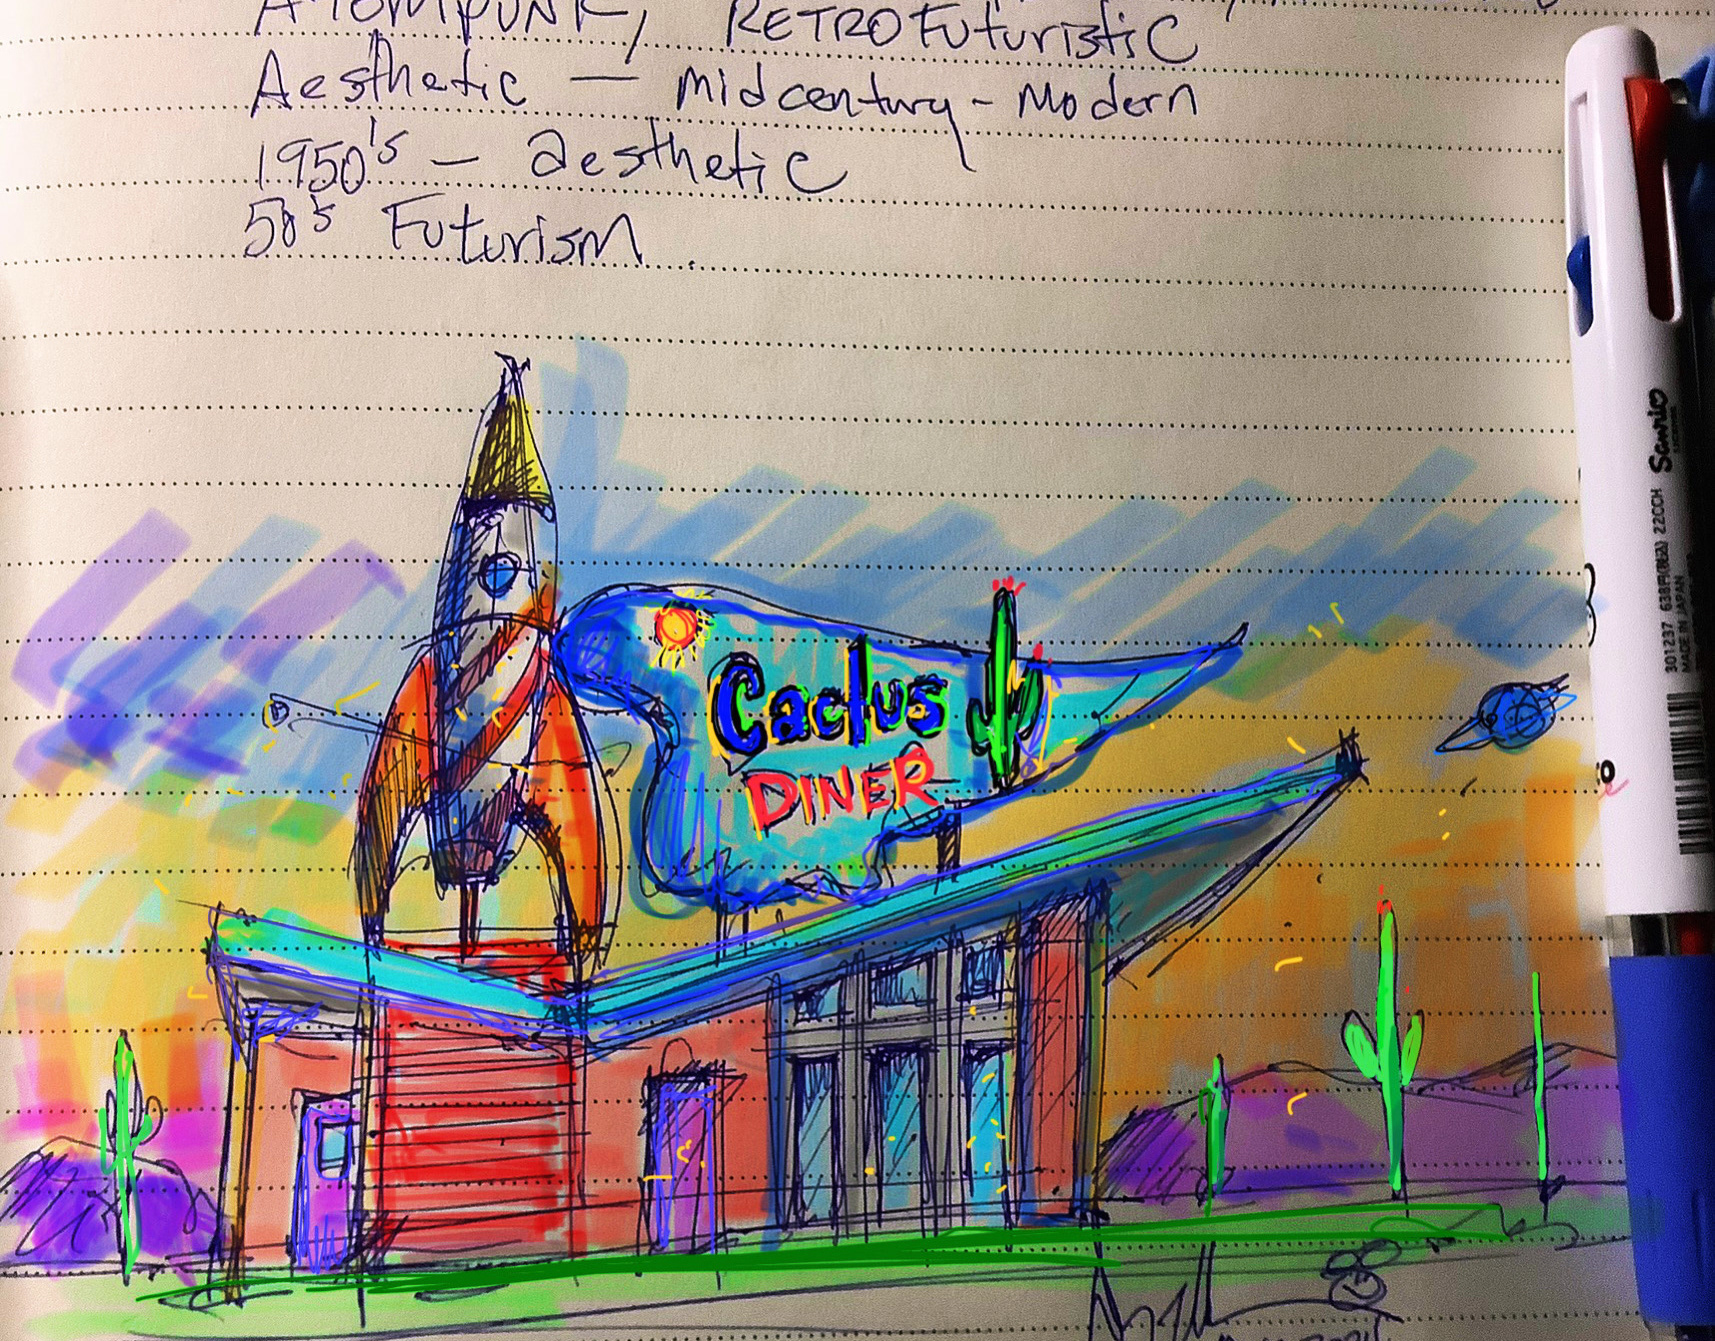 ATOMPUNK, RETROFUTURistiC
Aesthetic — Midcentury - Modern
1950's — aesthetic
50's Futurism.
Cactus
DINER
Sanrio
301237 638P(RBA) 22CCH
MADE IN JAPAN